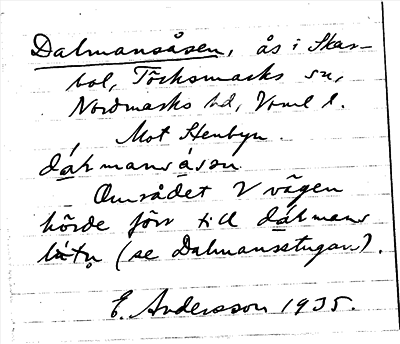 Dalmansåsen, ås i Skar-
bol, Töcksmarks sn,
Nordmarks hd, Vrml l.
Mot Stenbyn.
dálmansåsən
Området V vägen
hörde förr till dálmans
(se Dalmansstugan).
E. Andersson 1935.